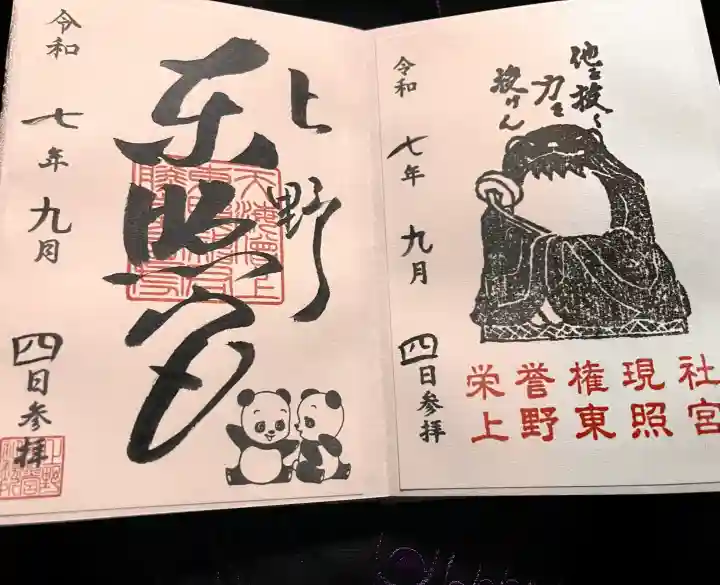 他を抜く
力を
授けん
栄誉権現社
上野東照宮
令和七年九月四日参拝
上野
東照宮
令和七年九月四日参拝